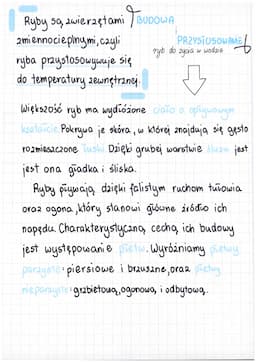 Ryby są zwierzętami
zmiennocieplnymi, czyli
ryba przystosowywuje się
do temperatury zewnętrznej.
BUDOWA
PRZYSTOSOWANIE
ryb do życia w wodzie
Większość ryb ma wydłużone ciało o opływowym
kształcie. Pokrywa je skóra, w której znajdują się gęsto
rozmieszczone łuski. Dzięki grubej warstwie śluzu jest
jest ona gładka i śliska.
Ryby pływają, dzięki falistym ruchom tułowia
oraz ogona, który stanowi główne źródło ich
napędu. Charakterystyczną cechą, ich budowy
jest występowanie płetw. Wyróżniamy płetwy
parzyste: piersiowe i brzuszne, oraz płetwy
nieparzyste: grzbietową, ogonową i odbytową.